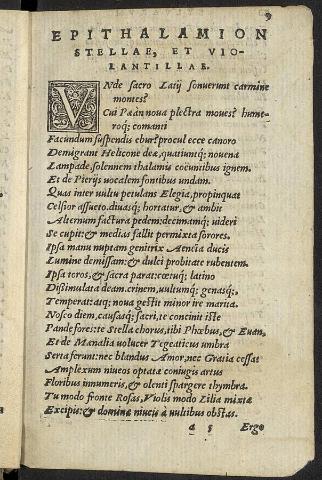 9
EPITHALAMION
STELLAE, ET VIO-
LANTILLAE.
VNde sacro Latij sonuerunt carmine
montes?
Cui Pæan noua plectra moues? hume-
roq; comanti
Facundum suspendis ebur? procul ecce canoro
Demigrant Helicone deæ, quatiuntq; nouena
Lampade solennem thalamis coeuntibus ignem.
Et de Pierijs uocalem fontibus undam.
Quas inter uultu petulans Elegia, propinquat
Celsior assueto. diuasq; hortatur, & ambit
Alternum factura pedem: decimamq; uideri
Se cupit: & medias fallit permixta sorores.
Ipsa manu nuptam genitrix Aeneia ducis
Lumine demissam: & dulci probitate rubentem.
Ipsa toros, & sacra parat: cœtuq; latino
Dissimulata deam. crinem, uultumq; genasq;,
Temperat: atq; noua gestit minor ire marita.
Nosco diem, causasq; sacri, te concinit iste
Pande fores: te Stella chorus, tibi Phœbus, & Euan,
Et de Mænalia uolucer Tegeaticus umbra
Serta ferunt: nec blandus Amor, nec Gratia cessat
Amplexum niueos optatæ coniugis artus
Floribus innumeris, & olenti spargere thymbra.
Tu modo fronte Rosas, Violis modo Lilia mixtæ
Excipis: & dominæ niueis à uultibus obstas.
a 5 Ergo